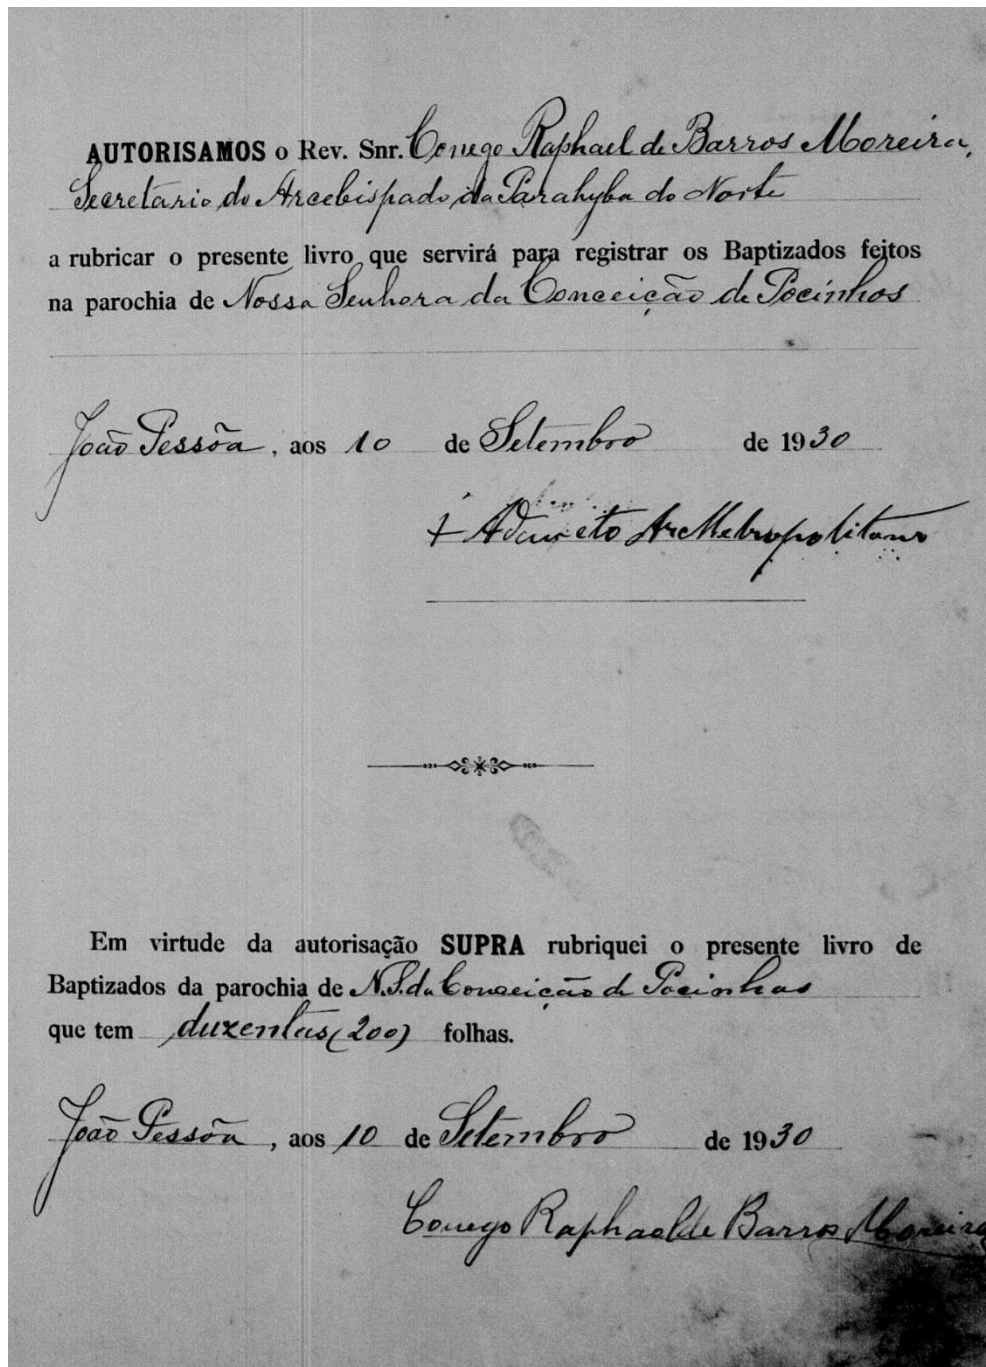 AUTORISAMOS o Rev. Snr. Conego Raphael de Barros Moreira,
Secretario do Arcebispado da Parahyba do Norte
a rubricar o presente livro que servirá para registrar os Baptizados feitos
na parochia de Nossa Senhora da Conceição de Pocinhos
João Pessõa, aos 10 de Setembro de 1930
+ Adaucto Arc Metropolitano
Em virtude da autorisação SUPRA rubriquei o presente livro de
Baptizados da parochia de N.S. da Conceição de Pocinhos
que tem duzentas (200) folhas.
João Pessõa, aos 10 de Setembro de 1930
Conego Raphael de Barros Moreira